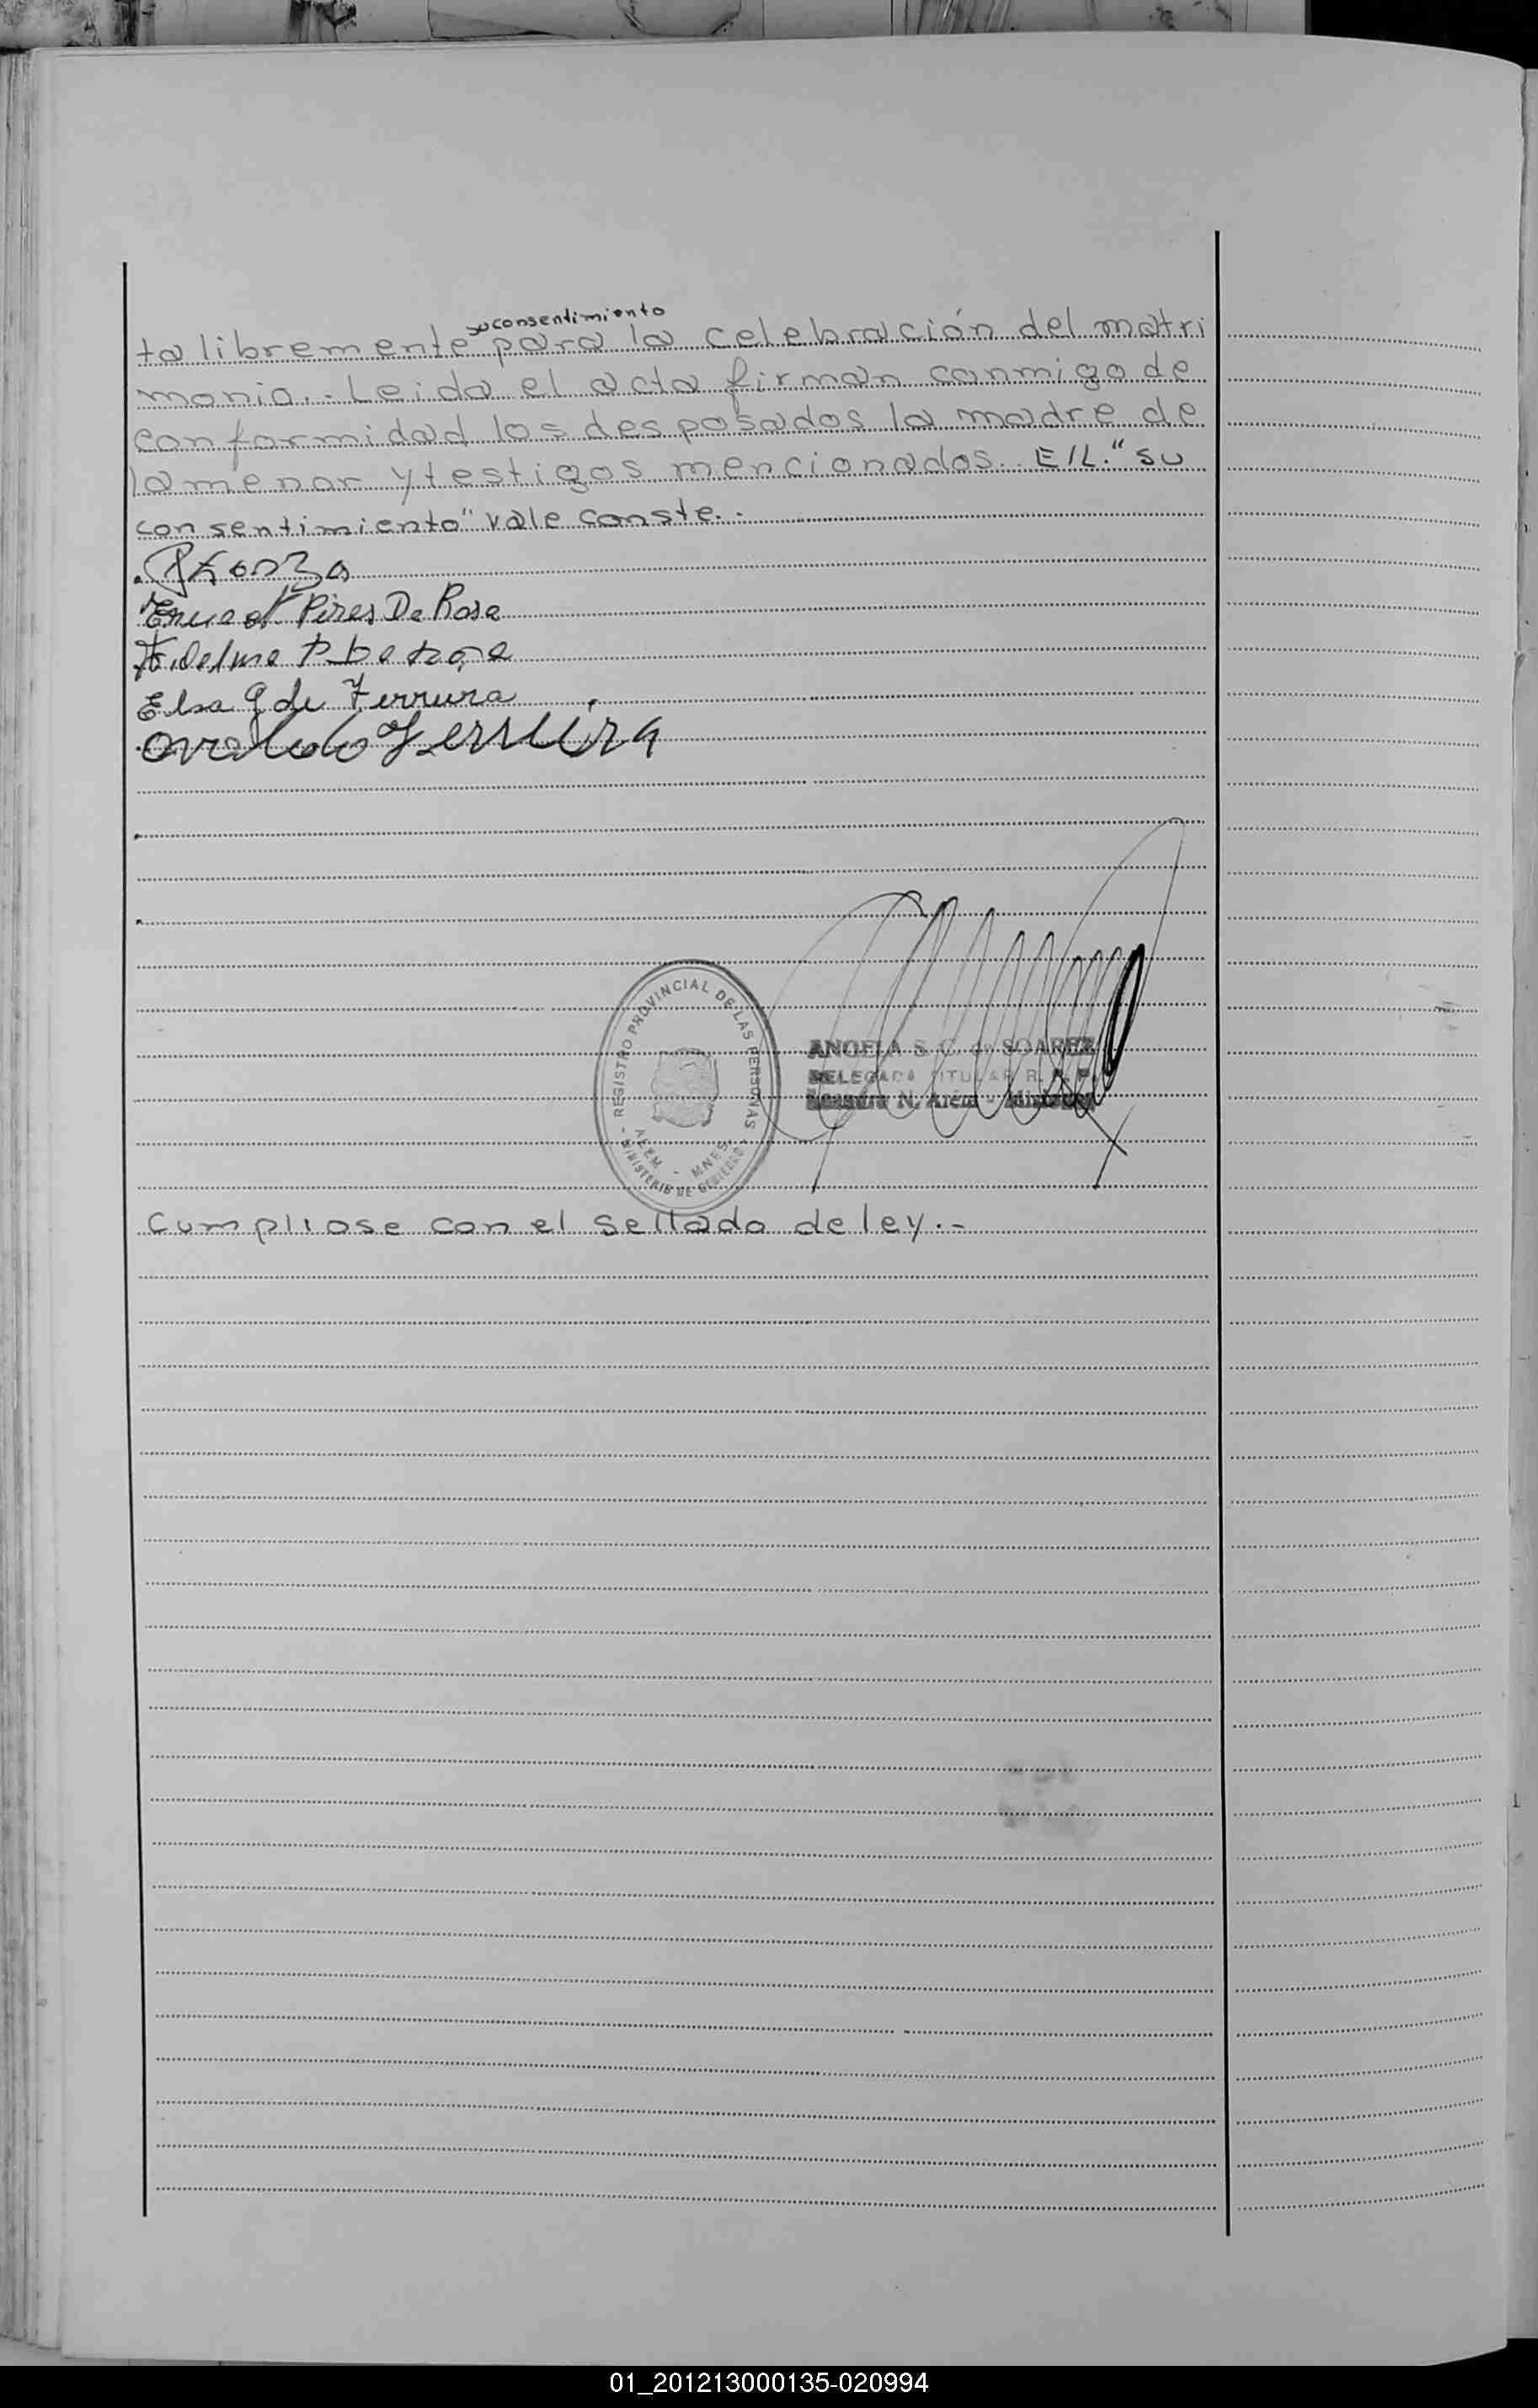 su consentimiento
ta libremente para la celebración del matri
monio.. Leida el acta firman conmigo de
conformidad los desposados la madre de
la menor y testigos mencionados.. E/L." su
consentimiento" vale conste..
Pires De Rosa
Elsa G de Ferreira
Ferreira
REGISTRO PROVINCIAL DE LAS PERSONAS
ALEM - MNES.
MINISTERIO DE GOBIERNO
ANGELA S. C. de SOAREZ
DELEGADA TITULAR R. P. P.
Leandro N. Além - Misiones
Cumpliose con el sellado de ley.-
01_201213000135-020994